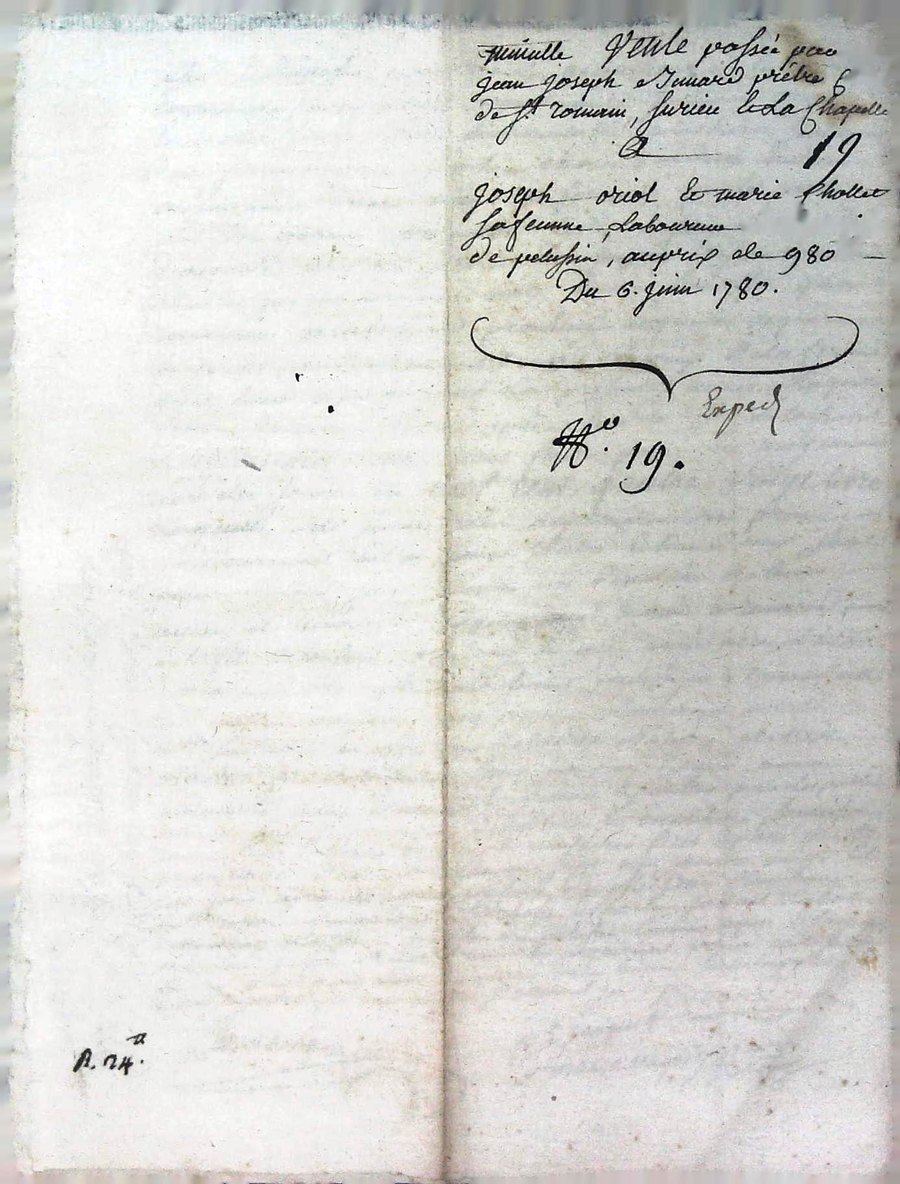 Minutte Vente passée par
jean joseph prêtre
de St romain, surieu & La Chapelle
A 19
joseph oriol Et marie Chollet
sa femme, Laboureur
de pelussin, au prix de 980 —
Du 6. juin 1780.
Exped
N.º 19.
R. 24.tt